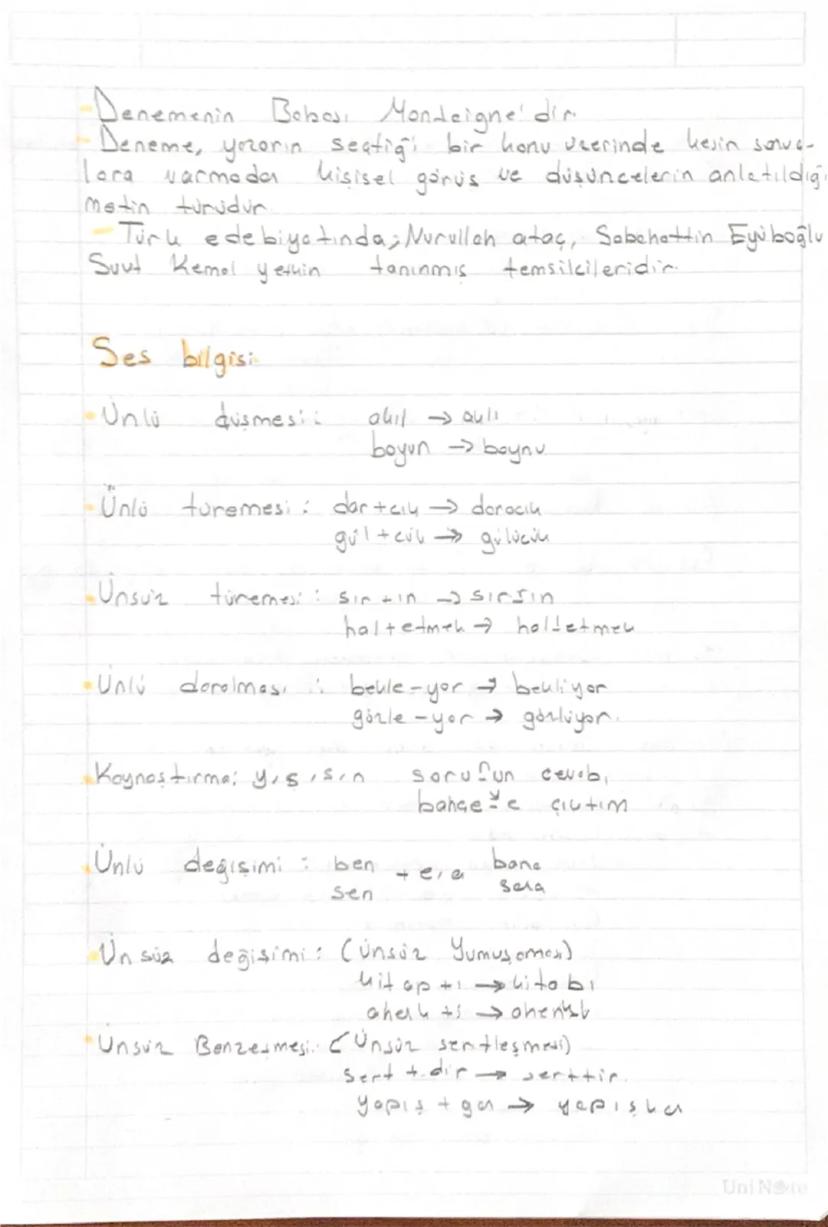 - Denemenin Babası Mondeigne'dir.
- Deneme, yazarın seçtiği bir konu üzerinde kesin sonuç-
lara varmadan kişisel görüş ve düşüncelerin anlatıldığı
metin türüdür
- Türk edebiyatında; Nurullah ataç, Sabahattin Eyüboğlu
Suut Kemal yetkin tanınmış temsilcileridir.
Ses bilgisi
• Ünlü düşmesi: akıl → aklı
boyun → boynu
• Ünlü türemesi: dar+cık → daracık
gül+cük → gülücük
• Ünsüz türemesi: sır+ın →
hal+etmek → halletmek
• Ünlü daralması: bekle-yor → bekliyor
gözle-yor → gözlüyor.
• Kaynaştırma: y, ş, s, n sorunun cevabı
bahçeye çıktım
• Ünlü değişimi: ben +e, a bana
sen sana
• Ünsüz değişimi: (Ünsüz Yumuşaması)
kitap+ı → kitabı
• Ünsüz Benzeşmesi: (Ünsüz sertleşmesi)
sert+dir → serttir.
yapış+gan → yapışkan
UniNote